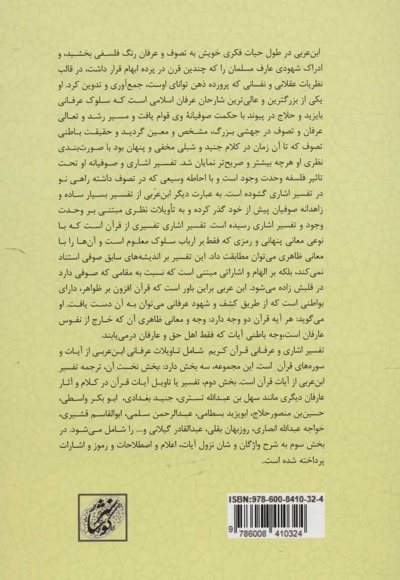 ابن‌عربی در طول حیات فکری خویش به تصوف و عرفان رنگ فلسفی بخشید، و
ادراک شهودی عارف مسلمان را که چندین قرن در پرده ابهام قرار داشت، در قالب
نظریات عقلانی و نفسانی که پرورده ذهن توانای اوست، جمع‌آوری و تدوین کرد. او
یکی از بزرگترین و عالی‌ترین شارحان عرفان اسلامی است کـه سلوک عرفـانی
بایزید و حلاج در پیوند با حکمت صوفیانهٔ وی قوام یافت و مسیر رشد و تعالی
عرفان و تصوف در جهشی بـزرگ، مشخص و معین گردیـد و حقیقت باطنی
تصوف که تا آن زمان در کلام جنید و شبلی مخفی و پنهان بود با صورت‌بندی
نظری او هرچه بیشتر و صریح‌تر نمایان شد. تفسیر اشاری و صـوفیانه او تحت
تاثیر فلسفه وحدت وجود است و با احاطه وسیعی که در تصوف داشته راهی نو
در تفسیر اشاری گشوده است. به عبارت دیگر ابن‌عربی از تفسیر بسیار ساده و
زاهدانه صوفیان پیش از خود گذر کرده و به تأویلات نظری مبتنی بـر وحدت
وجود و تفسیر اشاری رسیده است. تفسیر اشاری تفسیری از قرآن است کـه با
نوعی معانی پنهانی و رمزی که فقط بر ارباب سلوک معلوم است و آن‌ها را با
معانی ظاهری می‌توان مطابقت داد. این تفسیر بر اندیشه‌های سابق صوفی استناد
نمی‌کند، بلکه بر الهام و اشاراتی مبتنی است که نسبت به مقامی که صوفی دارد
در قلبش زاده می‌شود. ابن عربی براین باور است که قرآن افزون بر ظواهر، دارای
بواطنی است که از طریق کشف و شهود عرفانی می‌توان به آن دست یافت. او
می‌گوید: هر آیه قرآن دو وجه دارد: وجه و معانی ظاهری آن که خارج از نفوس
عارفان است،وجه باطنی آیات که فقط اهل حق و عارفان درمی‌یابند.
تفسیر اشاری و عرفـانی قـرآن کـریم شامل تـاویلات عرفـانی ابـن‌عربی از آیـات و
سوره‌های قرآن است. این مجموعه، سه بخش دارد: بخش نخست آن، ترجمه تفسیر
ابن‌عربی از آیات قرآن است. بخش دوم، تفسیر یا تاویل آیـات قرآن در کـلام و آثـار
عارفان دیگری مانند سهل بن عبدالله تستری، جنید بغدادی، ابو بکر واسطی،
حسین‌بن منصورحلاج، ابویزید بسطامی، عبدالرحمن سلمی، ابوالقاسم قشیری،
خواجه عبدالله انصاری، روزبهان بقلی، عبدالقادر گیلانی و... را شامل می‌شود. در
بخش سوم به شرح واژگان و شان نزول آیات، اعلام و اصطلاحات و رموز و اشارات
پرداخته شده است.
ISBN: 978-600-8410-32-4
9 786008 410324